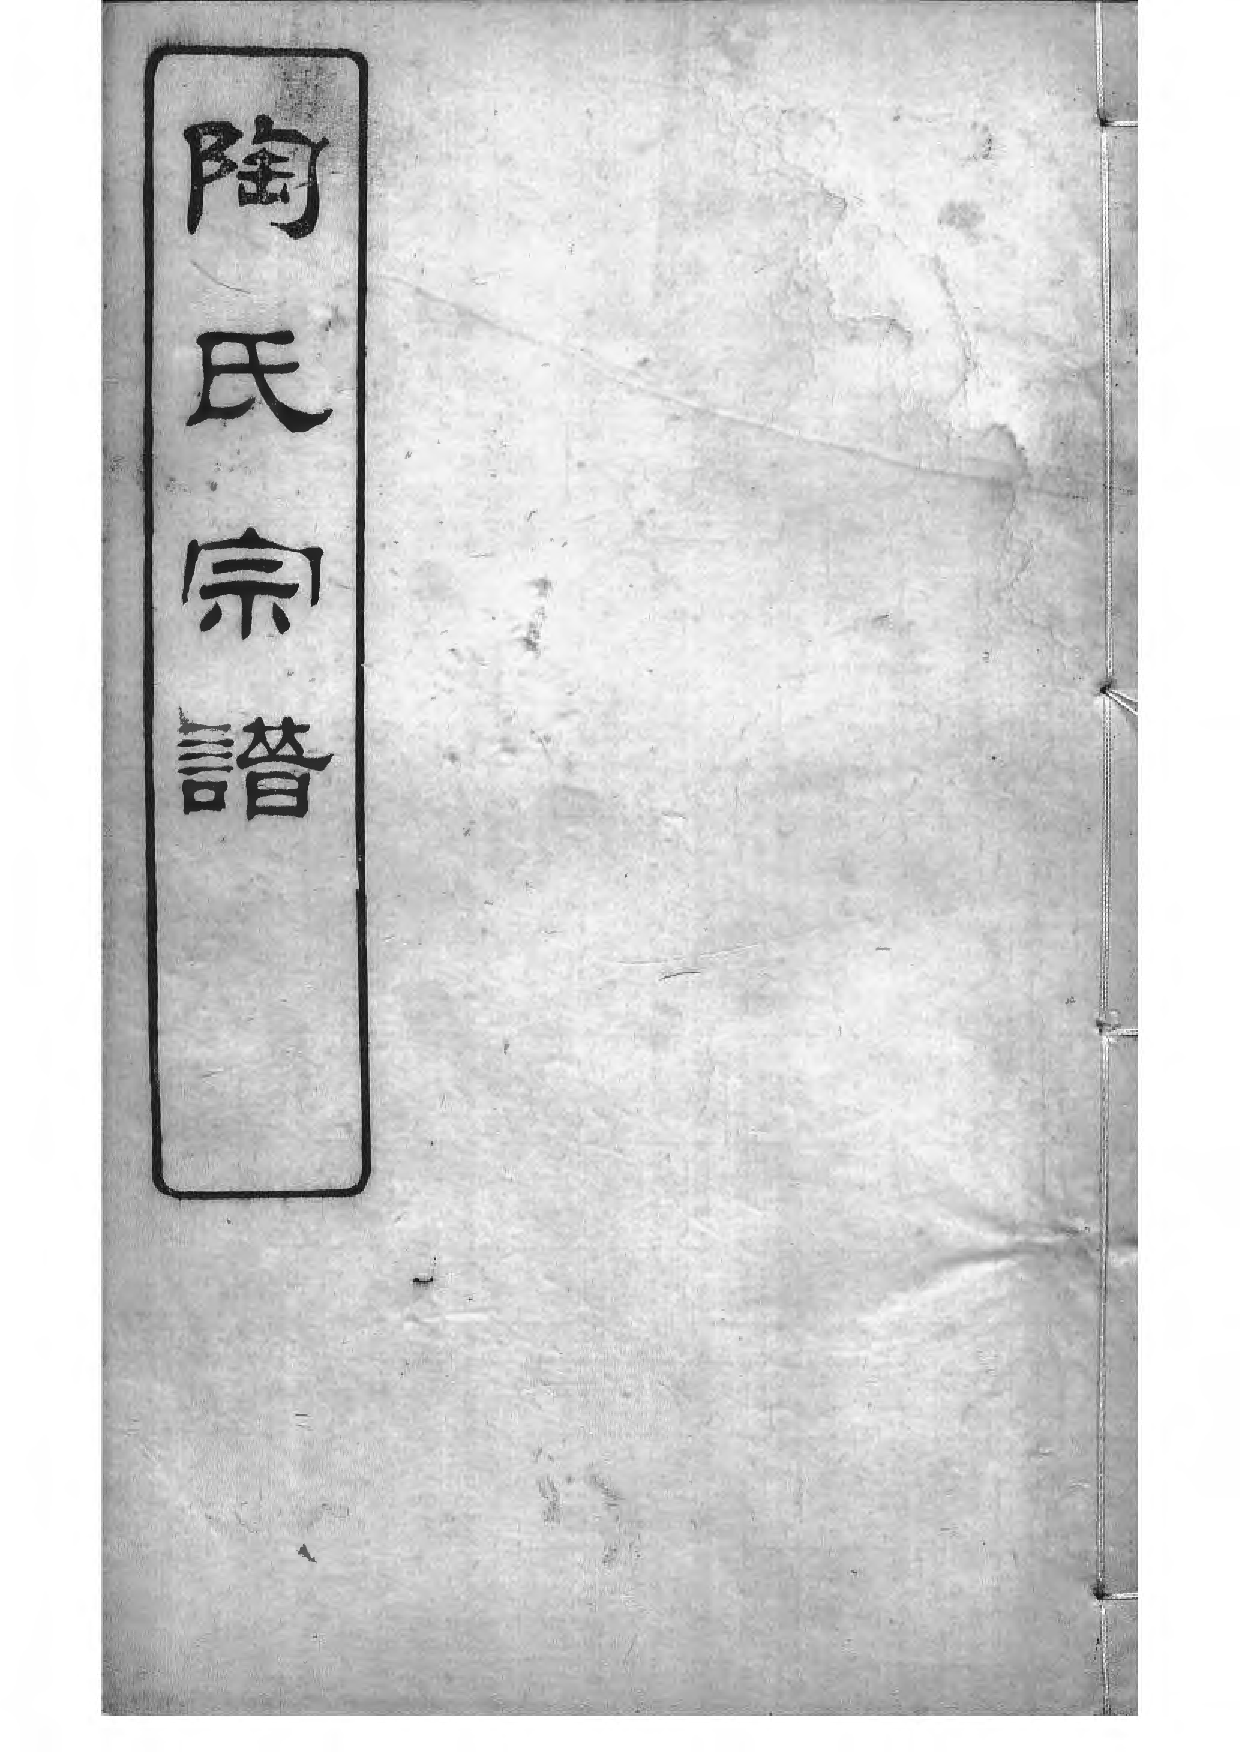 陶氏宗譜